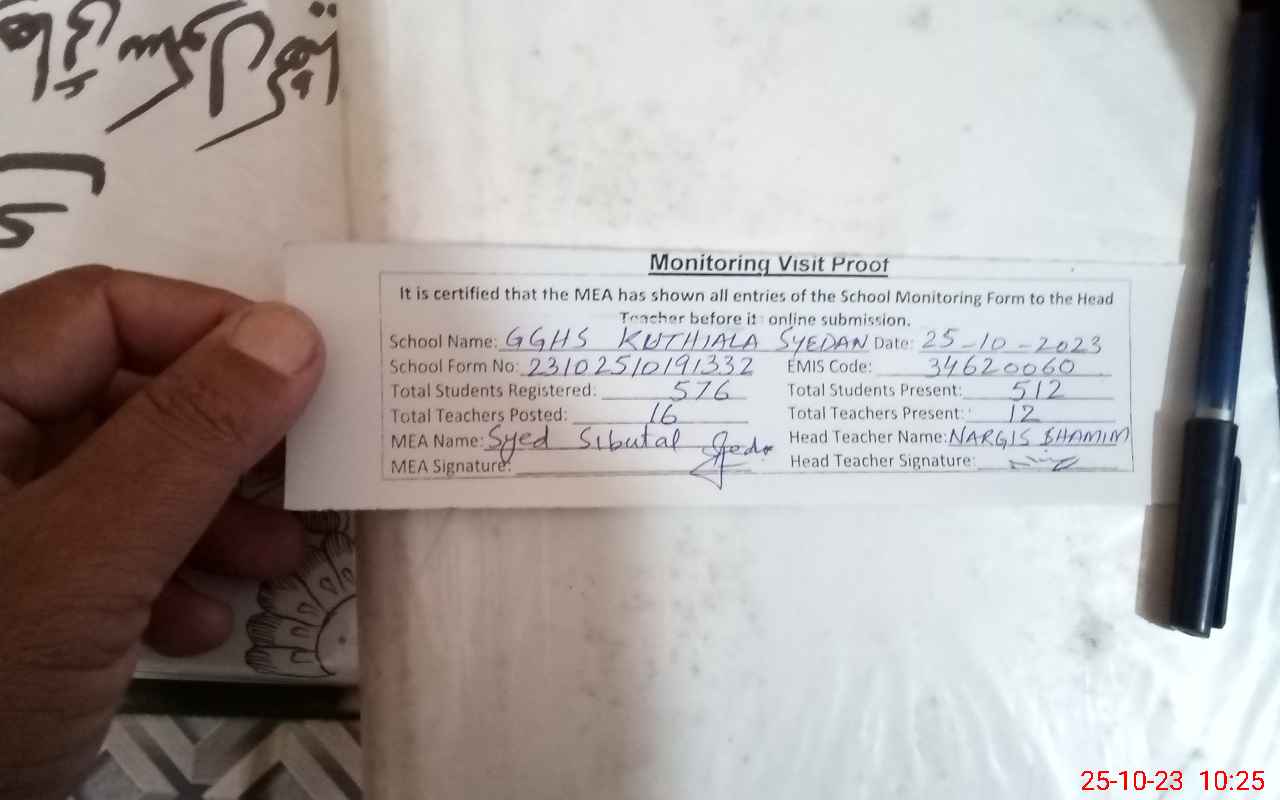 Monitoring Visit Proof
It is certified that the MEA has shown all entries of the School Monitoring Form to the Head
Teacher before it online submission.
School Name: GGHS KUTHIALA SYEDAN Date: 25-10-2023
School Form No: 23102510191332 EMIS Code: 34620060
Total Students Registered: 576 Total Students Present: 512
Total Teachers Posted: 16 Total Teachers Present: 12
MEA Name: Syed Sibutal Head Teacher Name: NARGIS SHAMIM
MEA Signature: Head Teacher Signature:
25-10-23 10:25